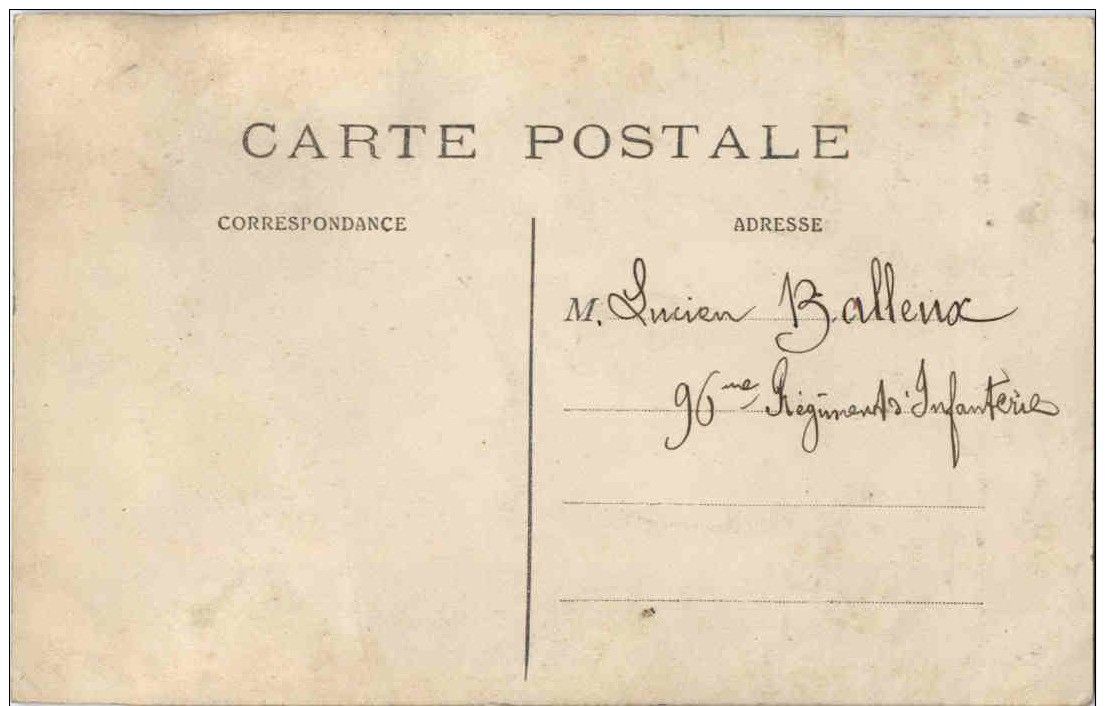 CARTE POSTALE
CORRESPONDANCE
ADRESSE
M. Lucien Balleux
96me Régiment d'Infanterie